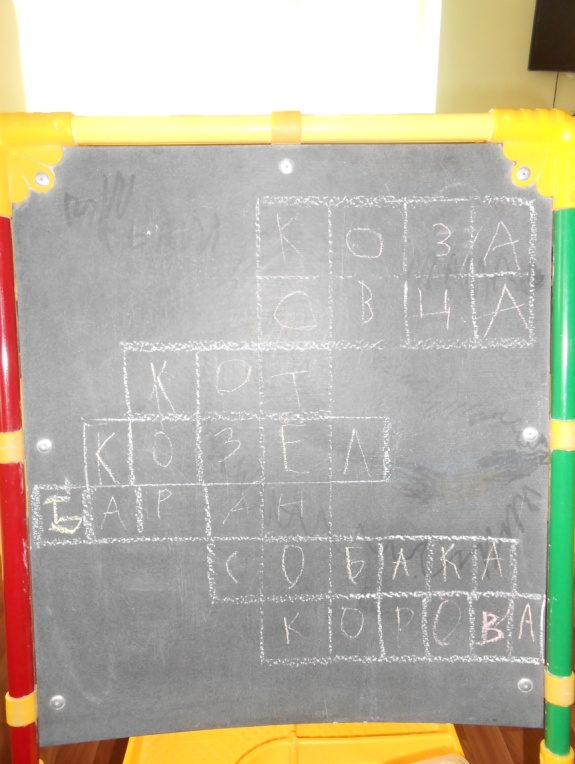 КОЗА
ОВЦА
КОТ
КОЗЕЛ
БАРАН
СОБАКА
КОРОВА